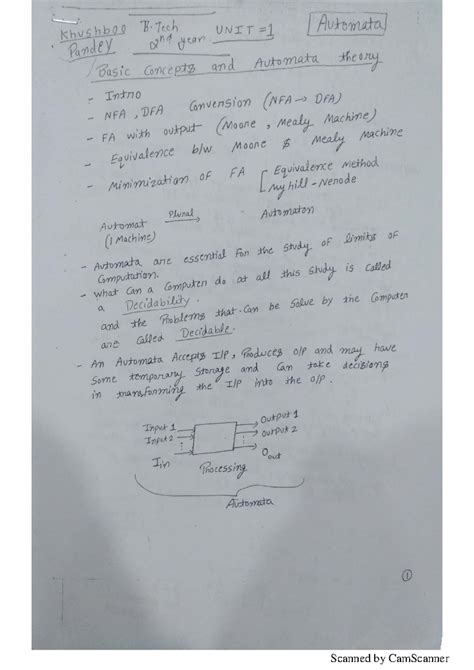 Khushboo Pandey
B.Tech 2nd year
UNIT = 1
Automata
Basic Concepts and Automata theory
- Intro
- NFA, DFA Conversion (NFA → DFA)
- FA with output (Moore, Mealy Machine)
- Equivalence b/w Moore & Mealy Machine
- Minimization of FA [ Equivalence Method
Myhill - Nerode
Automat Plural → Automaton
(1 Machine)
- Automata are essential For the study of limits of
Computation.
- What Can a Computer do at all this study is Called
a Decidability.
and the Problems that Can be Solve by the Computer
are Called Decidable.
- An Automata Accepts I/P, Produces O/P and may have
Some temporary Storage and Can take decisions
in transforming the I/P into the O/P.
Input 1
Input 2
Iin
Processing
Output 1
output 2
Oout
Automata
1
Scanned by CamScanner